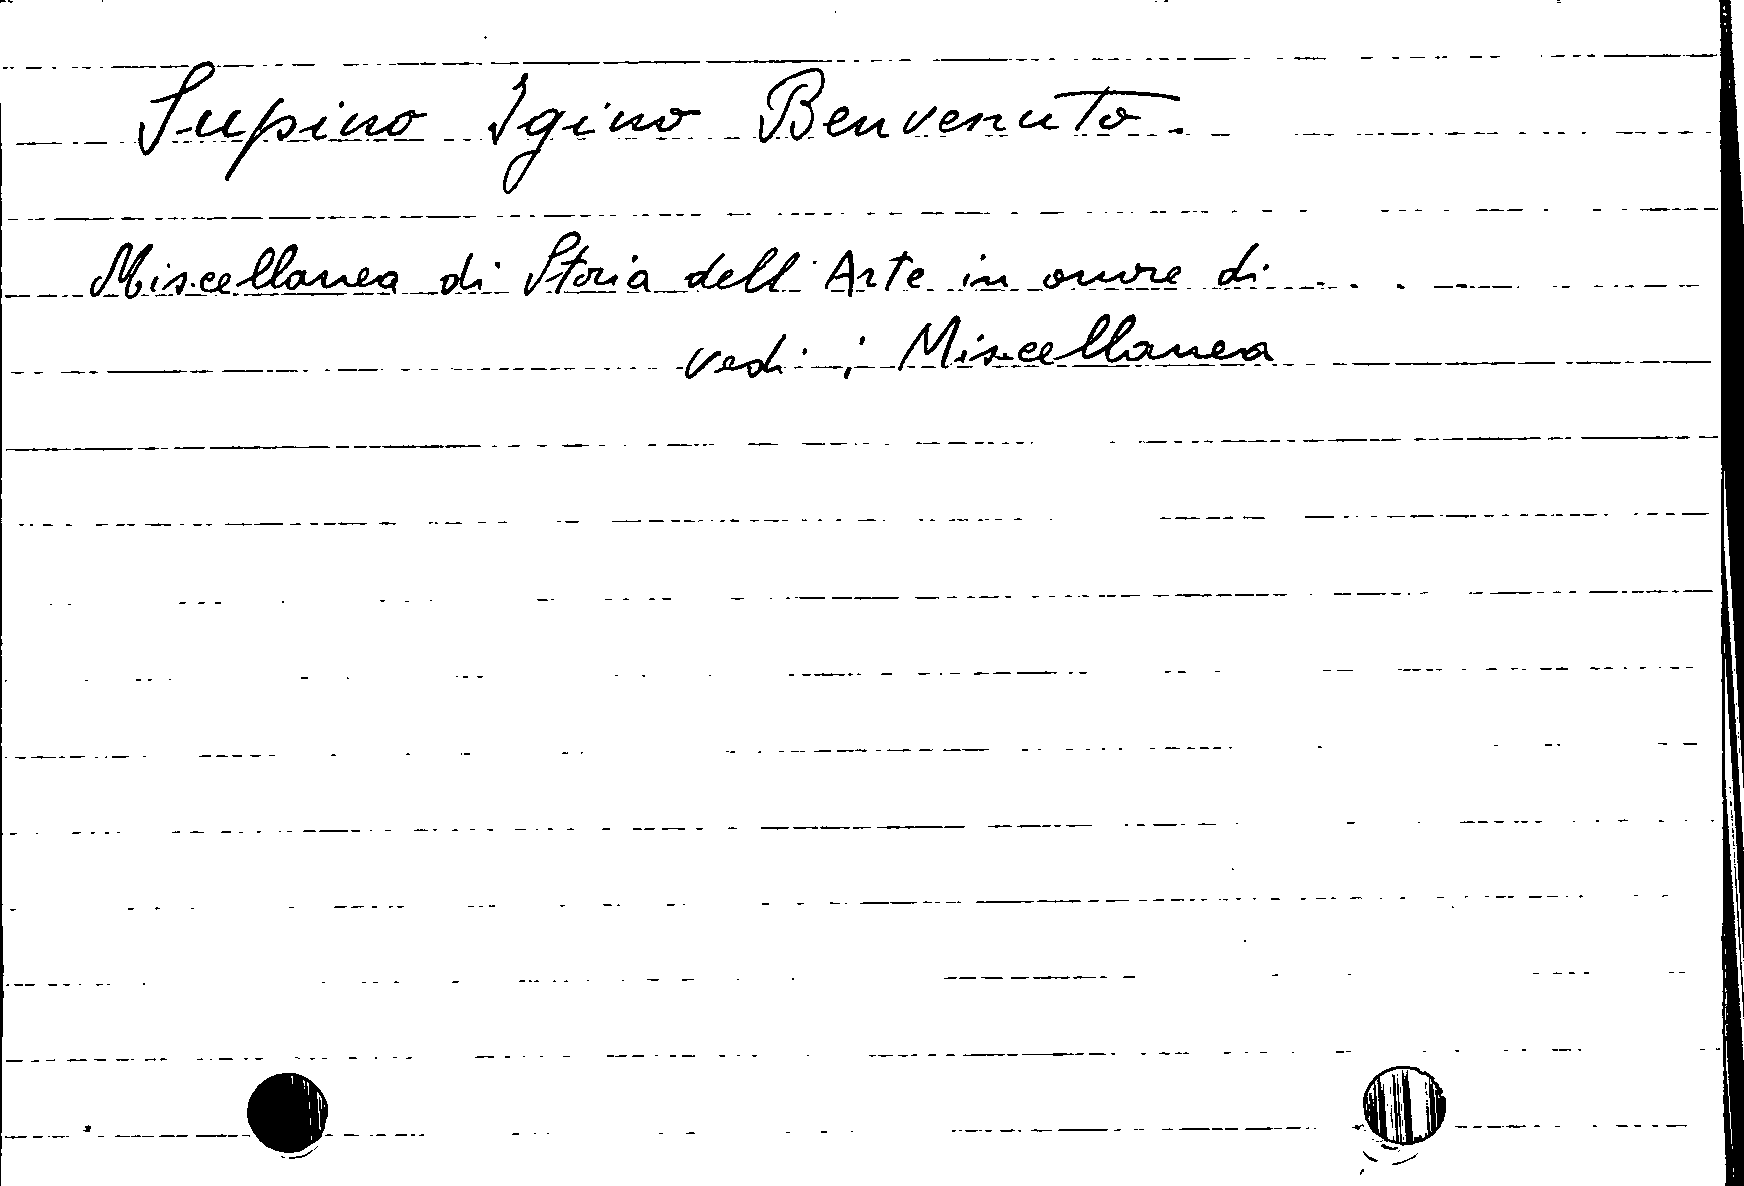 Supino Igino Benvenuto.
Miscellanea di Storia dell'Arte in onore di . . .
vedi ; Miscellanea